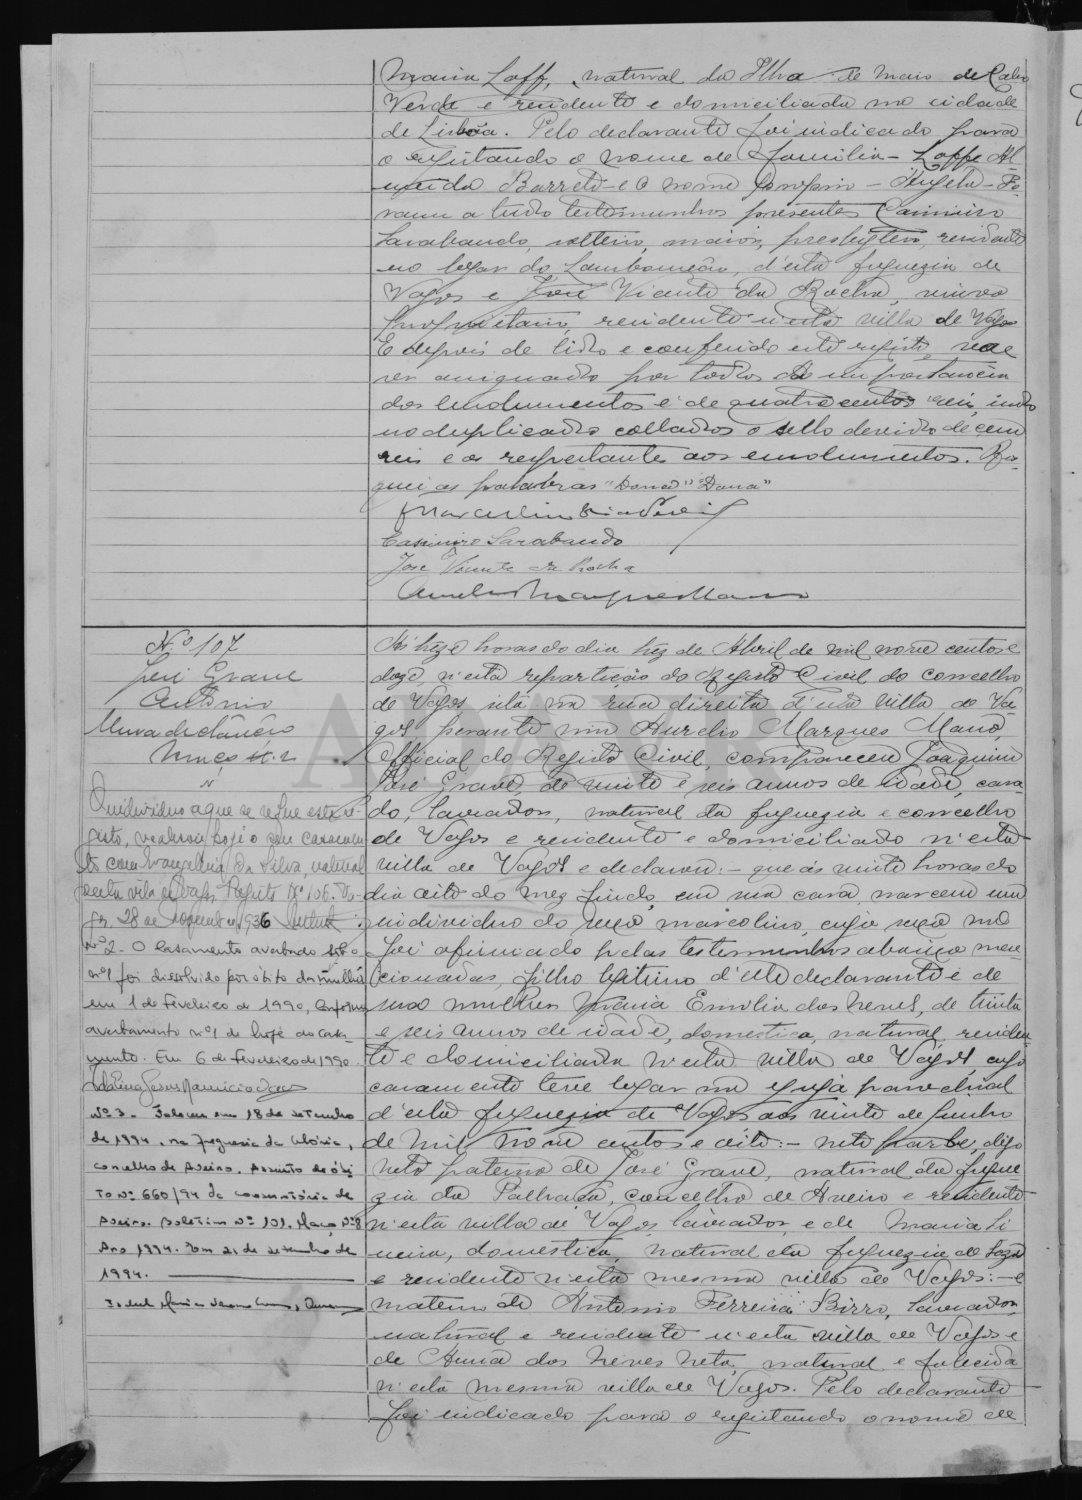 Maria Loff, natural da Ilha de Maio de Cabo
Verde e residente e domiciliada na cidade
de Lisbôa. Pelo declarante foi indicado para
o registando o nome de familia - Loff Al
meida Barreto - e o nome proprio - Angela - Fo-
ram a tudo testemunhas presentes Casimiro
Sarabando, solteiro, maior, presbytero, residente
no logar do Lombomeão, d'esta freguezia de
Vagos e José Vicente da Rocha, viuvo
proprietario, residente n'esta villa de Vagos
E depois de lido e conferido este registo vae
ser assignado por todos A importancia
dos emolumentos é de quatro centos reis, indo
no duplicado collados o sello devido de cem
reis e os respeitantes aos emolumentos. Ris-
quei as palavras "Dona" "Dona"
Casimiro Sarabando
José Vicente da Rocha
Aurelio Marques Mano
Nº 107
José Grave
Antonio
Nunca
N.
O individuo a que se refere este re-
gisto, realisou hoje o seu casamen-
to com Evangelina da Silva, natural
desta vila de Vagos. Registo Nº 106. Va-
gos, 28 de Novembro 1936
nº 2 - O casamento averbado sob o
nº 1 foi dissolvido por óbito da mulher
em 1 de Fevereiro de 1990, conforme
averbamento nº 1 de hoje ao casa-
mento. Em 6 de fevereiro de 1990.
Nº 3 - Faleceu em 18 de setembro
de 1994, na freguesia da Glória,
concelho de Aveiro. Assento de óbi
to nº 660/94 da Conservatória de
Aveiro. Boletim nº 101. Maço nº 8
Ano 1994. Em 21 de setembro de
1994.
A's treze horas do dia trez de Abril de mil nove centos e
doze, n'esta repartição do Registo Civil do concelho
de Vagos sita na rua direita d'esta villa de Va-
gos perante mim Aurelio Marques Mano,
official do Registo Civil, compareceu Joaquim
José Grave, de vinte e seis annos de idade, casa-
do, lavrador, natural da freguezia e concelho
de Vagos e residente e domiciliado n'esta
villa de Vagos e declarou: - que ás vinte horas do
dia oito do mez findo, em sua casa, nasceu um
individuo do sexo masculino, cujo sexo me
foi afirmado pelas testemunhas abaixo men-
cionadas, filho legitimo d'elle declarante e de
sua mulher Maria Emilia das Neves, de trinta
e seis annos de idade, domestica, natural, residen-
te e domiciliada n'esta villa de Vagos, cujo
casamento teve logar na egreja parochial
d'esta freguezia de Vagos aos vinte de Junho
de mil nove centos e oito: - neto parte, digo
neto paterno de José Grave, natural da fregue
zia da Palhaça, concelho de Aveiro e residente
n'esta villa de Vagos, lavrador, e de Maria
domestica, natural da freguezia de Soza
e residente n'esta mesma villa de Vagos: - e
materno de Antonio Ferreira Birro, lavrador,
natural e residente n'esta villa de Vagos e
de Anna das Neves Neta, natural e falecida
n'esta mesma villa de Vagos. Pelo declarante
foi indicado para o registando o nome de